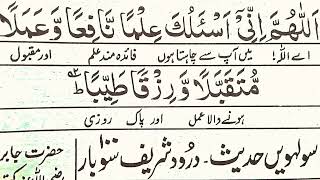 اَللّٰهُمَّ اِنِّیْ اَسْئَلُكَ عِلْمًا نَّافِعًا وَّعَمَلًا
اے اللہ! میں آپ سے چاہتا ہوں فائدہ مند علم اور مقبول
مُّتَقَبَّلًا وَّرِزْقًا طَيِّبًا
ہونے والا عمل اور پاک روزی
سولہویں حدیث۔ درود شریف ۱۰۰ بار
حضرت جابر